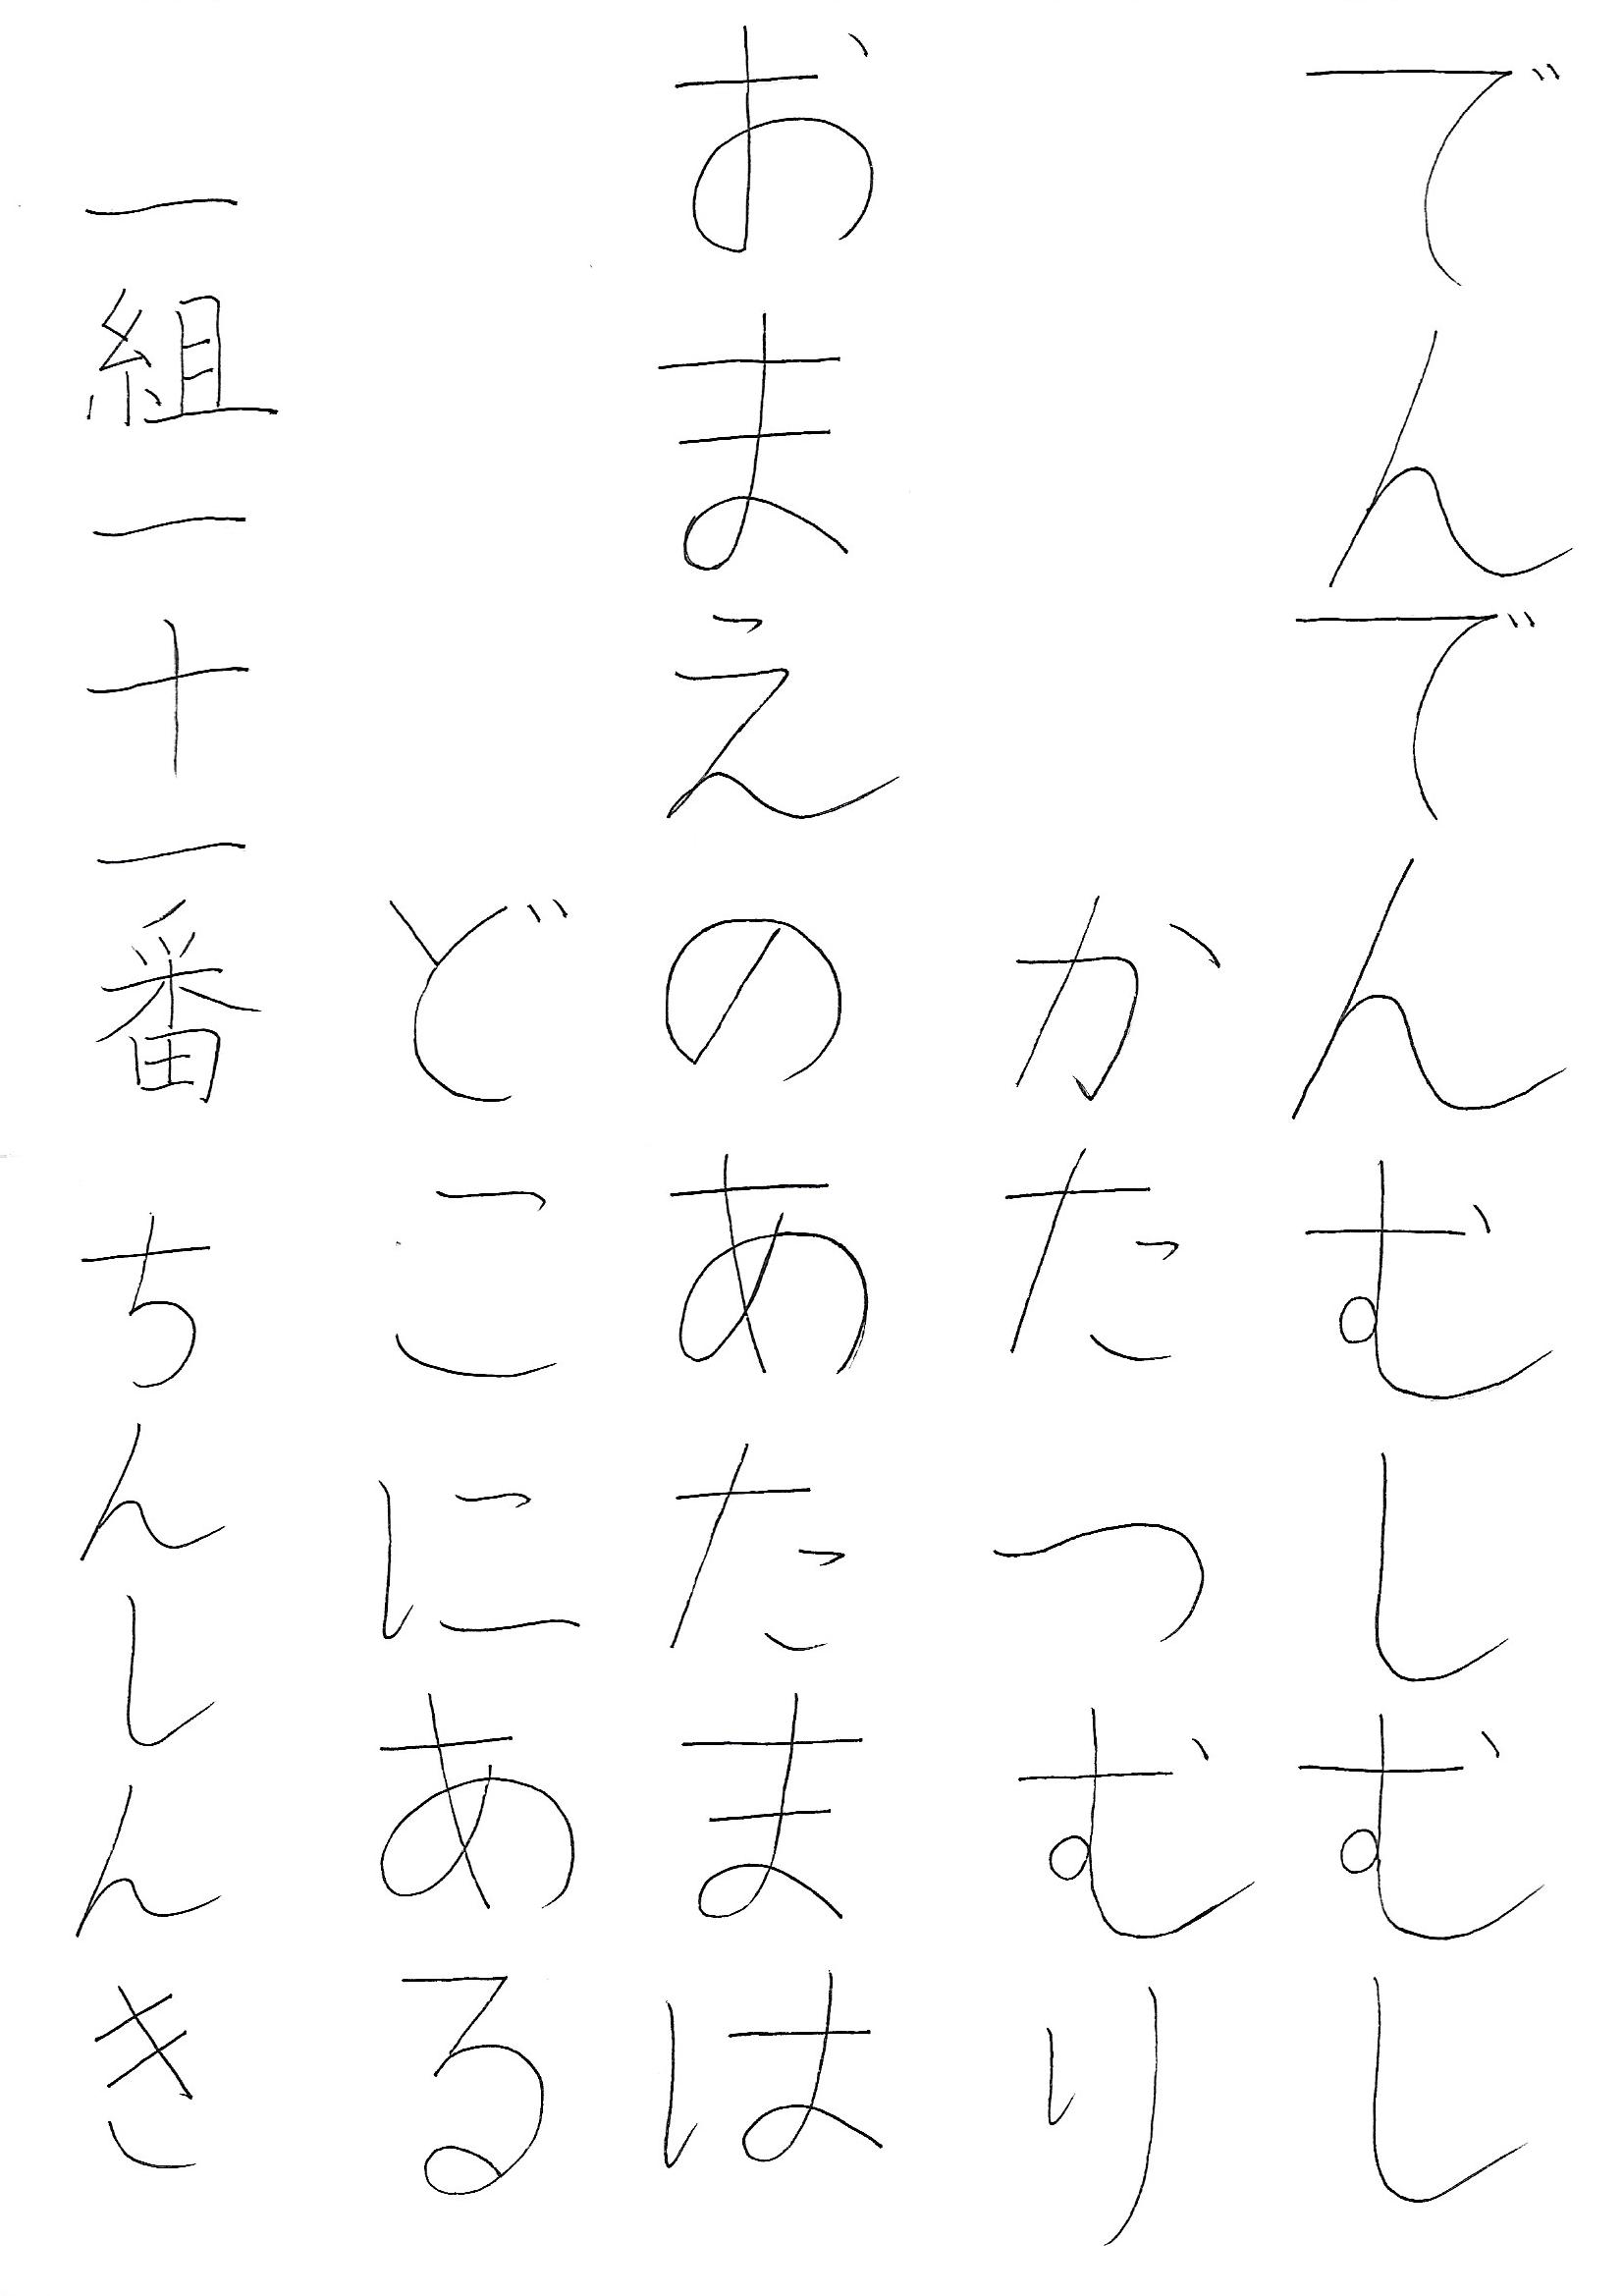 でんでんむしむし
かたつむり
おまえのあたまは
どこにある
一組一十一番 ちんしんき